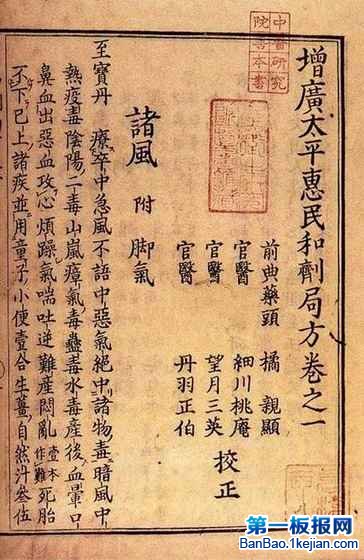 增廣太平惠民和劑局方卷之一
前典藥頭 橘 親顯
官醫 細川桃庵
官醫 望月三英
官醫 丹羽正伯
校正
諸風 附 脚氣
至寶丹 療卒中急風不語中惡氣絕中諸物毒暗風中
熱疫毒陰陽二毒山嵐瘴氣毒蠱毒水毒產後血暈口
鼻血出惡血攻心煩躁氣喘吐逆難產悶亂壹本作難死胎
不下已上諸疾並用童子小便壹合生薑自然汁叁伍
中醫研究
院善本書
第一板报网
BanBao.1kejian.com